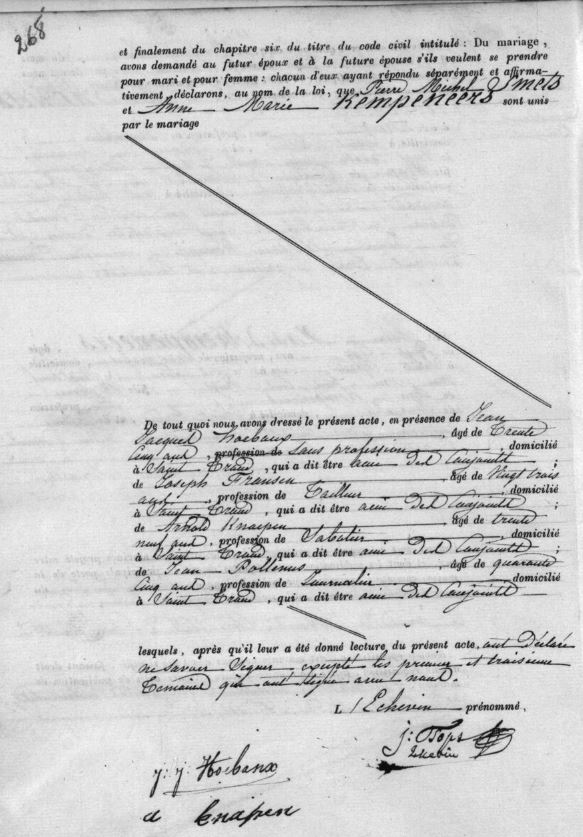 268
et finalement du chapitre six du titre du code civil intitulé : Du mariage,
avons demandé au futur époux et à la future épouse s'ils veulent se prendre
pour mari et pour femme : chacun d'eux ayant répondu séparément et affirma-
tivement, déclarons, au nom de la loi, que Pierre Michel Smets
et Anne Marie Kempeneers sont unis
par le mariage
De tout quoi nous avons dressé le présent acte, en présence de Jean
Jacques Hoebanx, âgé de trente
cinq ans, profession de Sans profession domicilié
à Saint Trond, qui a dit être ami des Conjoints ;
de Joseph Fransen âgé de Vingt trois
ans, profession de Tailleur domicilié
à Saint Trond, qui a dit être ami des Conjoints ;
de Arnold Knaepen âgé de trente
neuf ans, profession de Sabotier domicilié
à Saint Trond, qui a dit être ami des Conjoints ;
de Jean Pollenus, âgé de quarante
cinq ans, profession de Journalier domicilié
à Saint Trond, qui a dit être ami des Conjoints
lesquels, après qu'il leur a été donné lecture du présent acte, ont Déclaré
ne Savoir Signer excepté les premier et troisieme
temoins qui ont signé avec nous.
L'Echevin prénommé.
j: Tops
Echevin
j. j Hoebanx
a Knapen